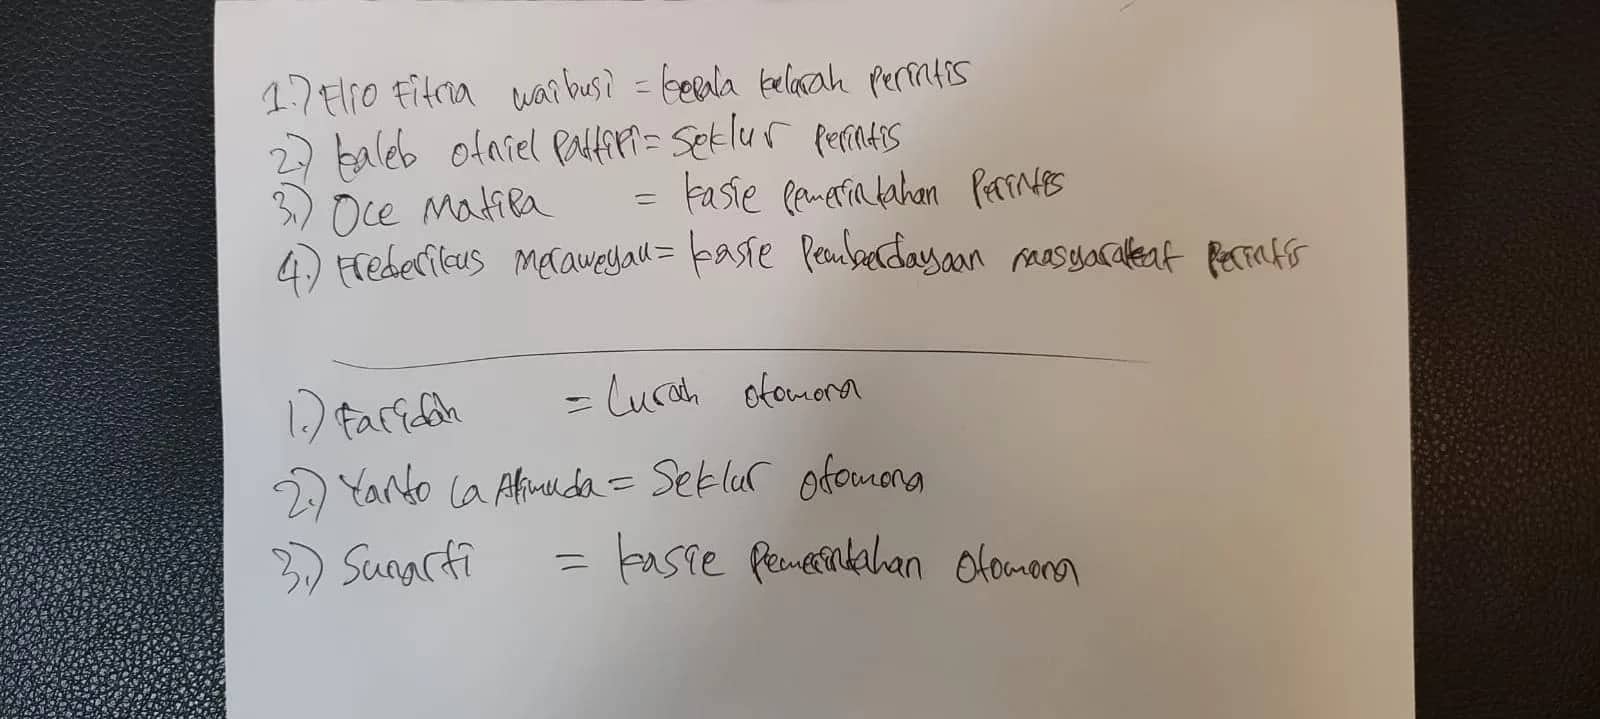 1.) Elio Fitria waibusi = kepala kelarah Perintis
2.) kaleb otniel Pattipi = Seklur Perintis
3.) Oce Matipa = kasie Pemerintahan Perintis
4.) Frederikus Meraweyau = kasie Pemberdayaan masyarakat Perintis
1.) Faridah = Lurah Otomona
2.) Yanto La Alimuda = Seklur Otomona
3.) Sunarti = kasie Pemerintahan Otomona